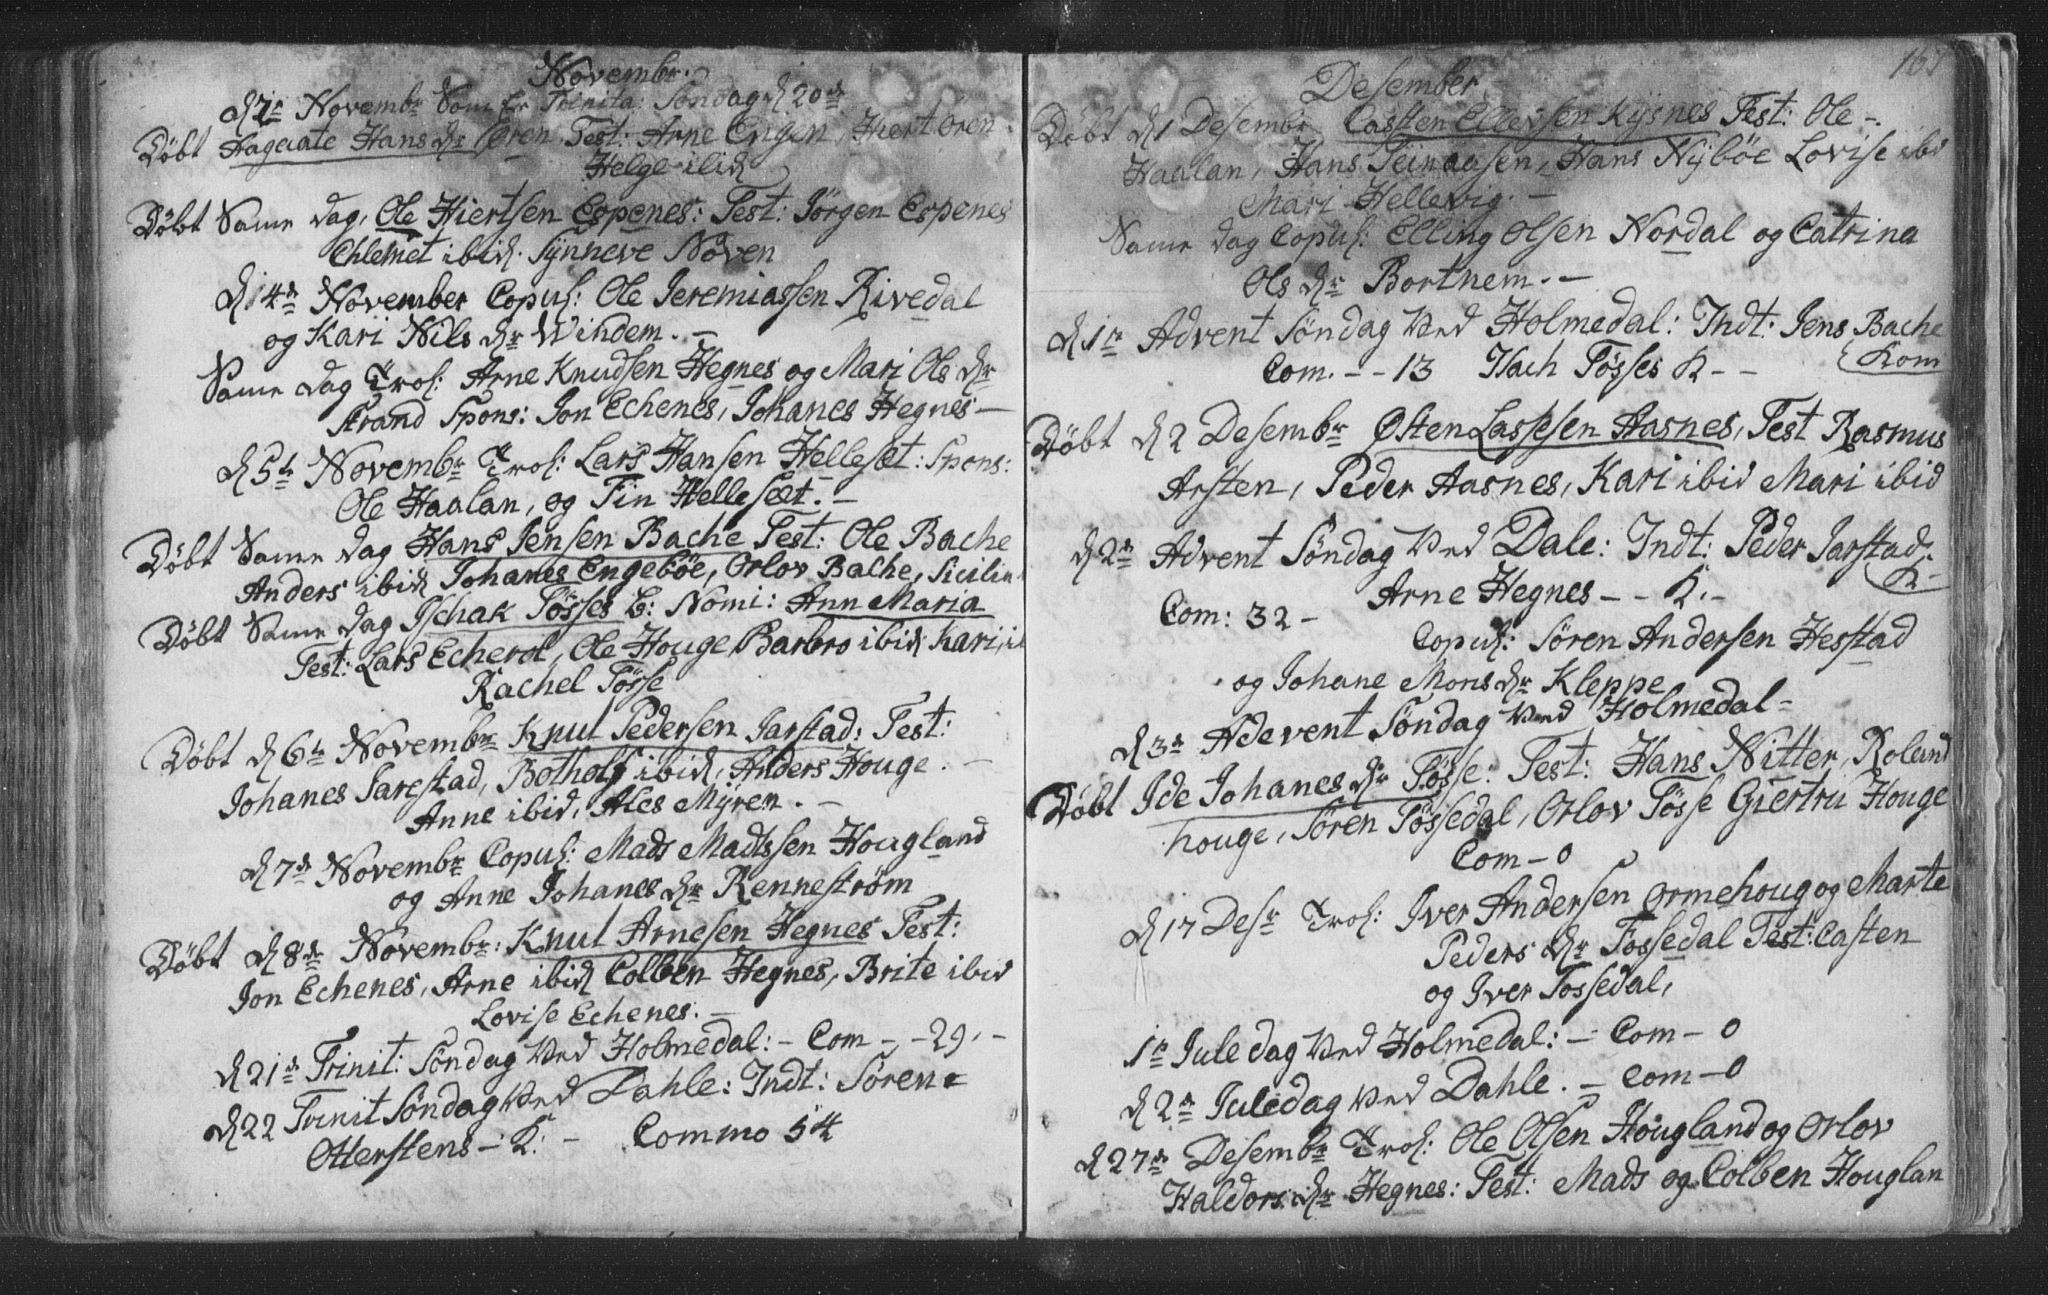 Novembr.
d 1e Novembr Som Er Trinita: Søndag d 20de
Døbt Hans dr Øren Test: Arne Engen, Hiert Øren
Helge ibid
Døbt Same dag, Ole Hiertsen Espenes: Test: Jørgen Espenes
Chlemet ibid. Synneve Noven
d 4de November Copul: Ole Jeremiassen Rivedal
og Kari Nils dr Windem. –
Same dag Trol: Arne Knudsen Hegnes og Mari Ols dr
Strand Spons: Jon Echenes, Johanes Hegnes –
d 5t Novembr Trol: Lars Hansen Helleset: Spons:
Ole Haalan, og Fin Hellesæt. –
Døbt Same dag Hans Jensen Bache Test: Ole Bache
Anders ibid Johanes Engebøe, Orlov Bache, Sicilie
Døbt Same dag Ischak Tøsses b: Nomi: Ann Maria
Test: Lars Echerol, Ole Houge, Barbro ibid Kari
Rachel Tøsse
Døbt d 6t Novembr Knut Pedersen Jarstad: Test:
Johanes Jarestad, Botholf ibid, Anders Houge. –
Anne ibid, Ales Myren. –
d 7de Novembr Copul: Mads Madtssen Hougland
og Anne Johanes dr Rennestrøm
Døbt d 8de Novembr: Knut Arnesen Hegnes Test:
Jon Echenes, Arne ibid Colben Hegnes, Brite ibid
Lovise Echenes. –
d 21de Trinit: Søndag ved Holmedal: – Com – – 29. –
d 22 Trinit Søndag ved Dahle: Indt: Søren
Otterstens – K: – Commo 54
167
Desember
Døbt d 1 Desembr Casten Ellevsen Kysnes Test: Ole –.
Haalan, Hans, Hans Nybøe Lovise ibd
Mari Hellevig. –
Same dag Copul: Elling Olsen Nordal og Catrina
Ols dr Bortnem. –
d 1e Advent Søndag ved Holmedal: Indt: Jens Bache
Kom
Com. – – 13 Isach Tøsses K – –
Døbt d 2 Desembr Østen Lassesen Aasnes, Test Rasmus
Arsten, Peder Aasnes, Kari ibid Mari ibid
d 2de Advent Søndag ved Dale: Indt: Peder Jarstads
K –
Arne Hegnes – – K. –
Com: 32 –
Copul: Søren Andersen Hesstad
og Johane Mons dr Kleppe
d 3de Adevent Søndag ved Holmedal –
Døbt Ide Johanes dr Tøsse: Test: Hans Nitter, Roland
houge, Søren Tøssedal, Orlov Tøsse Giertru Houge
Com – 0
d 17 Desr Trol: Iver Andersen Ormehoug og Marte
Peders dr Fossedal Test: Casten
og Iver Fossedal,
1e Juledag ved Holmedal: – Com – 0
d 2de Juledag ved Dahle. – Com – 0
d 27de Desembr Trol: Ole Olsen Hougland og Orlov
Haldors dr Hegnes: Test: Mads og Colben Houglan